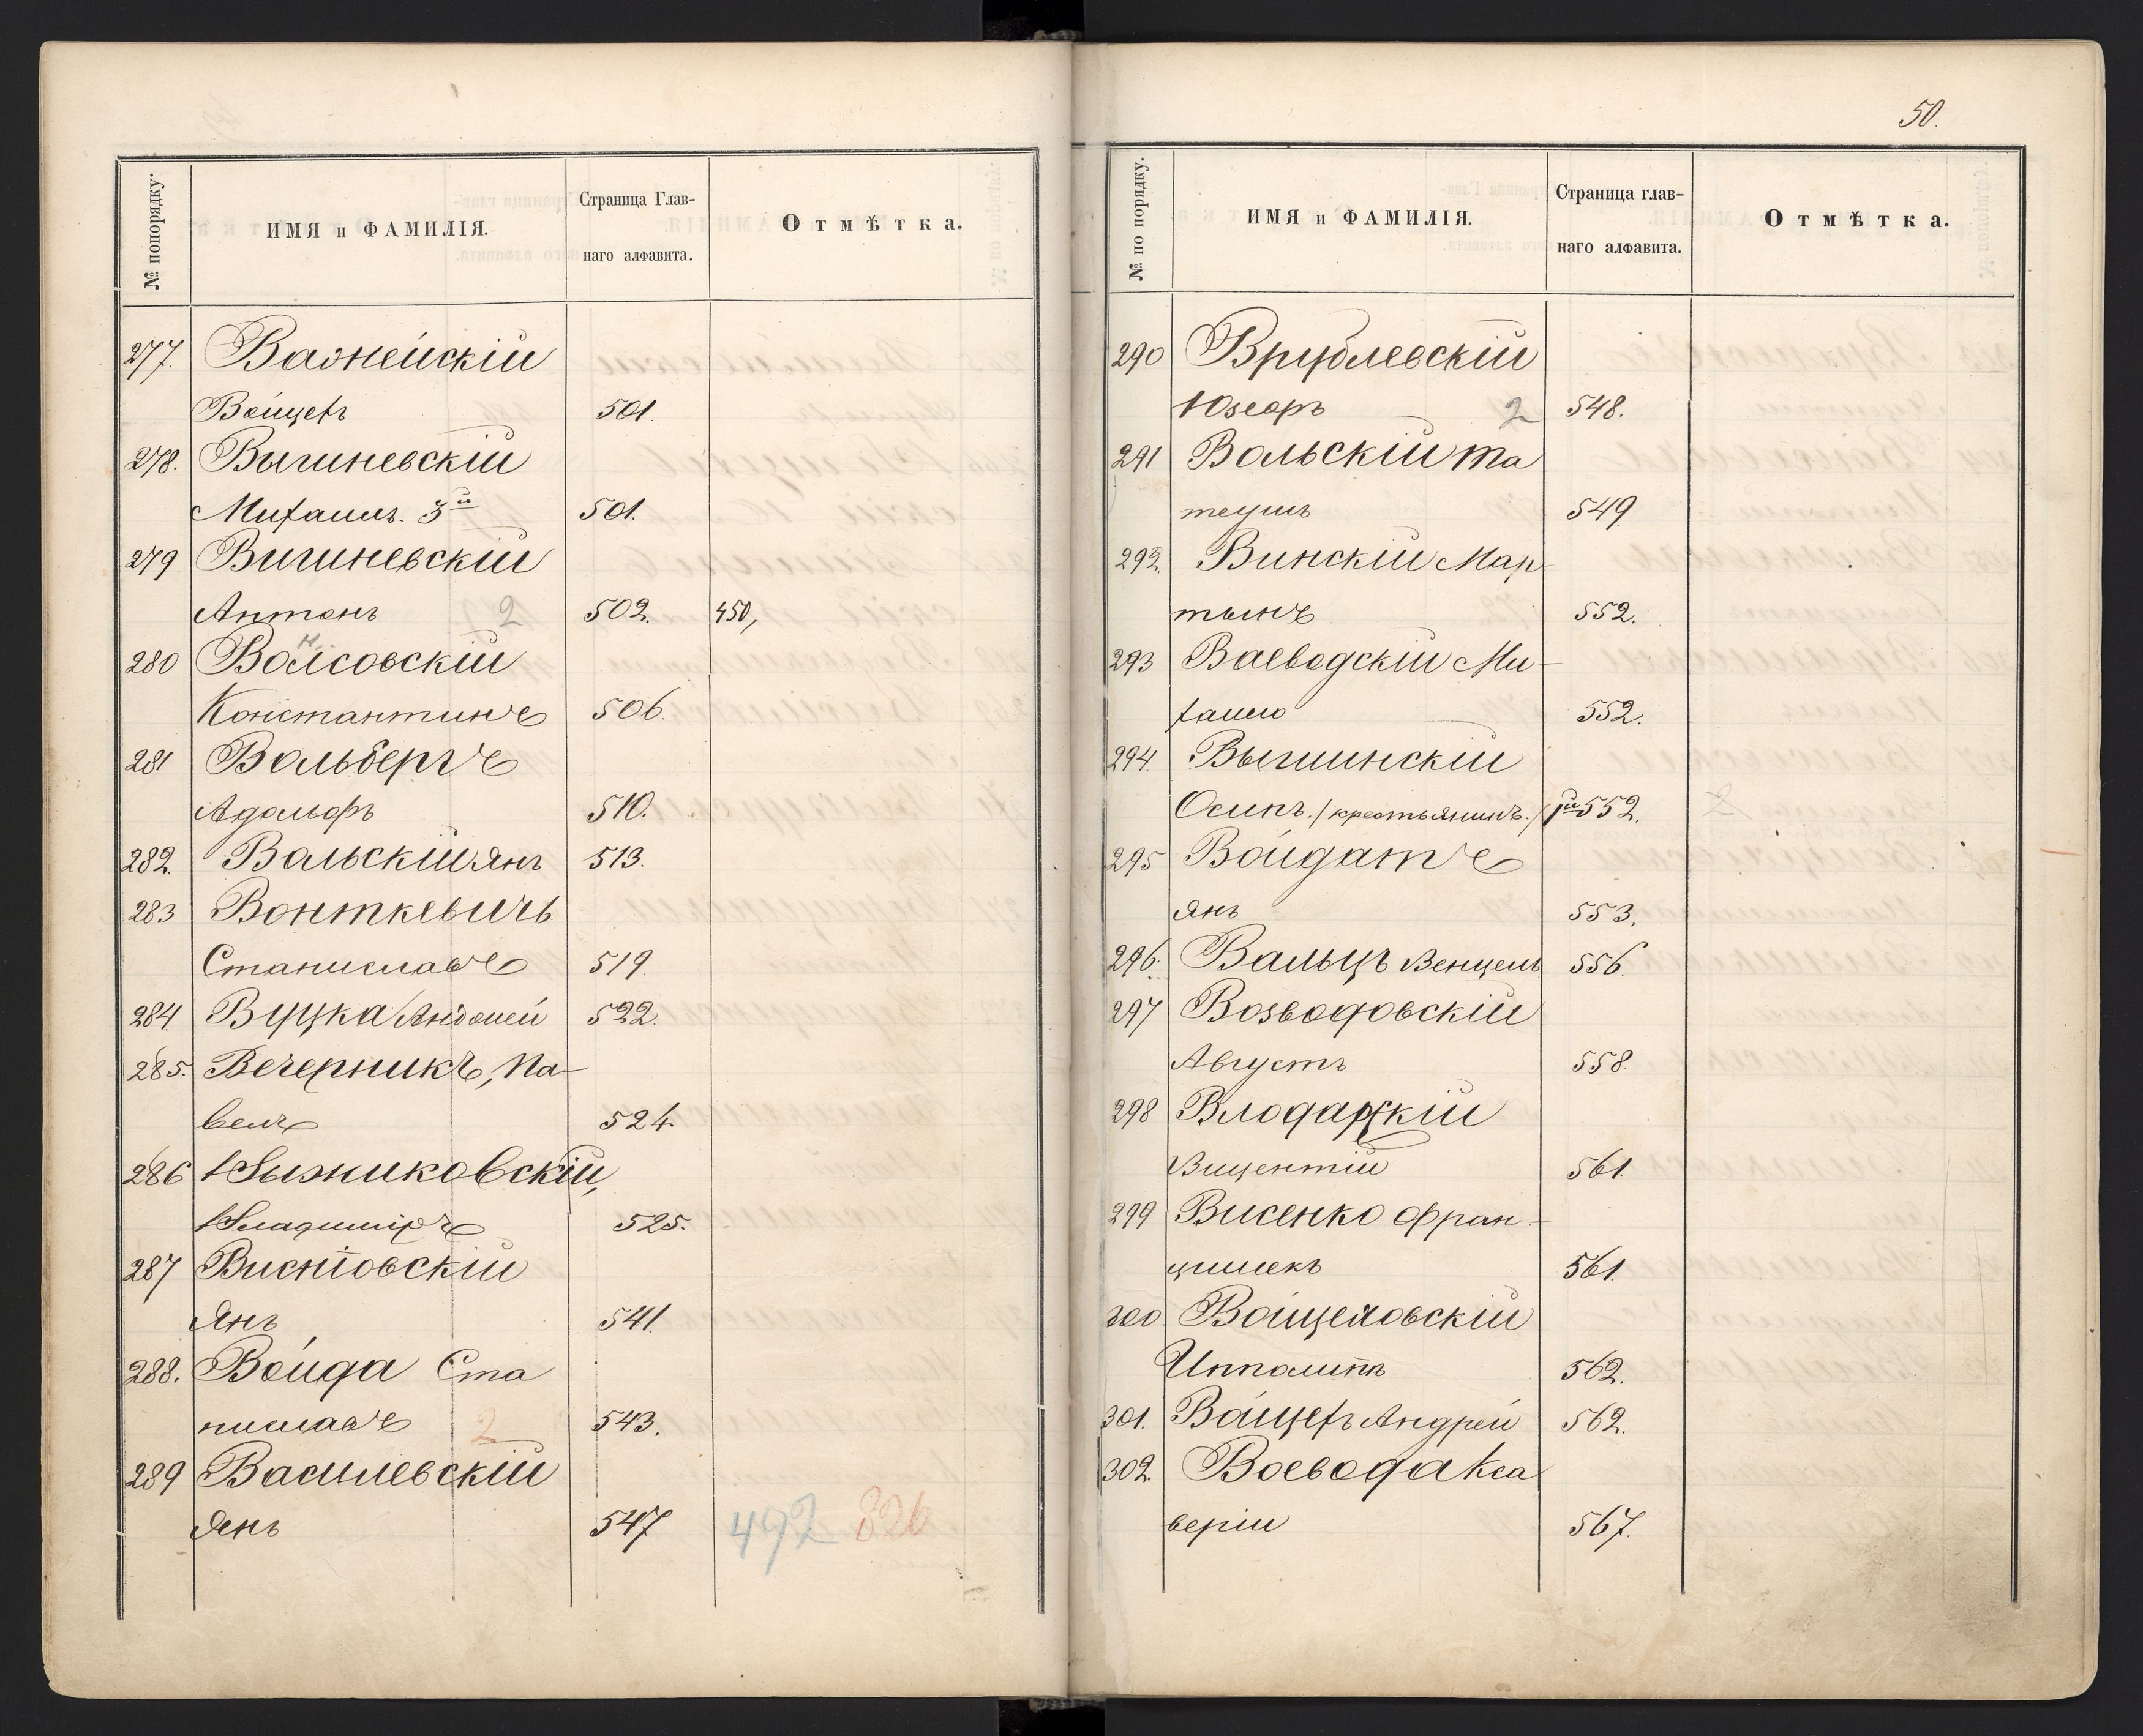 50.
№ попорядку.
ИМЯ и ФАМИЛІЯ.
Страница Глав-
наго алфавита.
Отмѣтка.
277. Важнейскій
Войцехъ 501.
278. Вышневскій
Михаилъ. 3й 501.
279 Вишневскій
Антонъ 2 502. 450,
280 Волсовскій
Константинъ 506.
281 Вольбергъ
Адольфъ 510.
282. Вольскій Янъ 513.
283 Вонткевичъ
Станиславъ 519.
284 Вуцка 522.
285. Вечерникъ, Па-
велъ 524.
286 Выжиковскій,
Владиміръ 525.
287
Янъ 541.
288. Войда Ста
ниславъ 2 543.
289 Василевскій
Янъ 547 492 826
№ по порядку.
ИМЯ и ФАМИЛІЯ.
Страница глав-
наго алфавита.
Отмѣтка.
290 Врублевскій
Юзефъ 2 548.
291 Вольскій Та
теушъ 549
292. Винскій Мар-
тынъ 552.
293 Ваеводскій Ми-
хаилъ 552.
294. Вышинскій
Осипъ. /крестьянинъ./ 1й 552. 2
295 Войдатъ
Янъ 553.
296. Вальцъ Венцель 556.
297 Возводовскій
Августъ 558.
298 Влодарскій
Вицентій 561.
299 Висенко Фран-
цишекъ 561.
300 Войцеховскій
Ипполитъ 562.
301. Войцехъ Андрей 562.
302. Воевода Кса
верій 567.